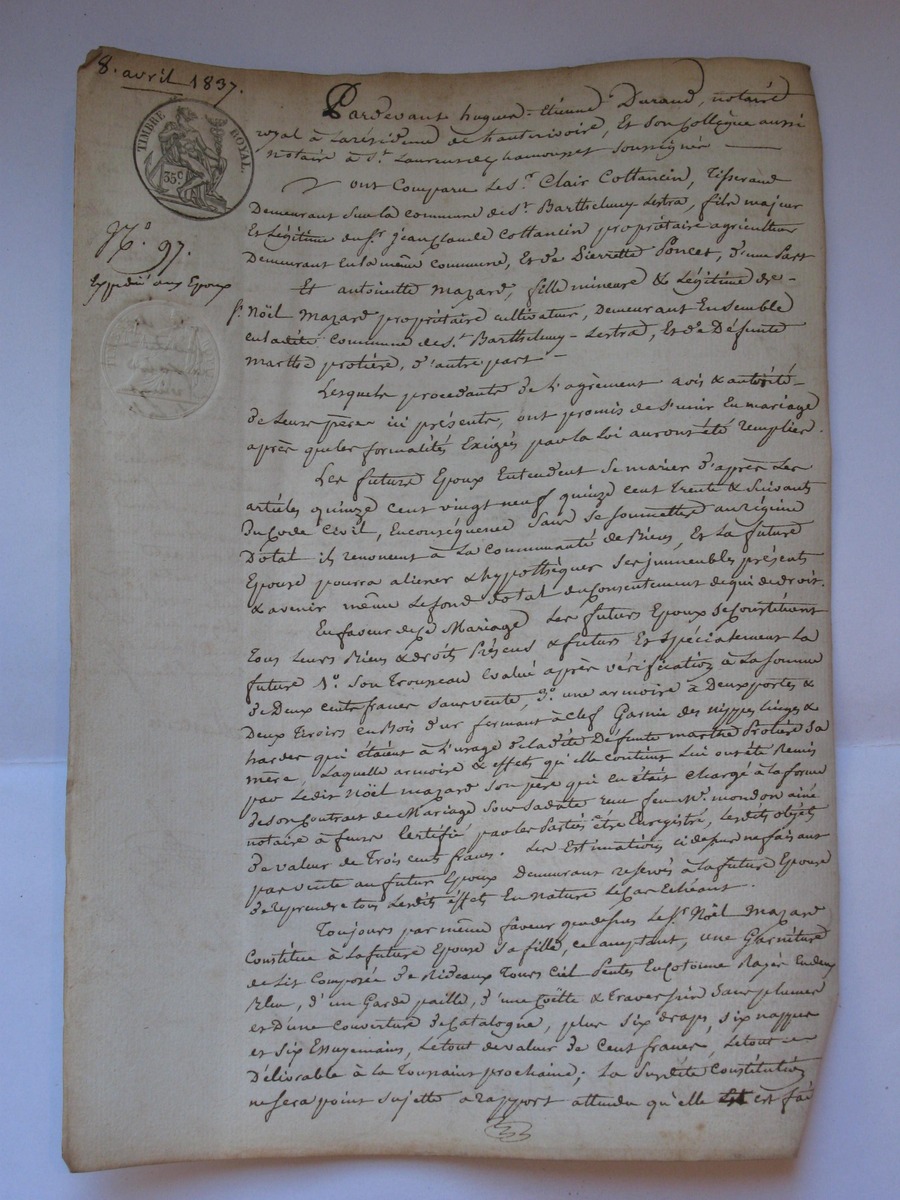 8. avril 1837.
TIMBRE ROYAL
35c
No. 97.
Expédié aux Epoux
Pardevant hugues-Etienne Durand, notaire
royal à la résidence de hauterivoire, Et son Collègue aussi
notaire à St. Laurent de chamousset soussignés
ont Comparu Le Sr. Clair Cottancin, Tisserand
Demeurant sur la commune de St. Barthelemy-Lestra, fils majeur
Et Légitime du Sr. jean Claude Cottancin propriétaire agriculteur
Demeurant en la même commune, Et de Pierrette Poncet, d'une Part
Et antoinette mazard, fille mineure & Légitime de
Sr. Nöil mazard propriétaire cultivateur, Demeurant Ensemble
en ladite Commune de St. Barthelemy-Lestra, Et de Défunte
marthe protière, d'autre part
Lesquels procedants de l'agrèment avis & autorité
de Leurs pères ici présents, ont promis de S'unir En mariage
après que les formalités Exigés par la Loi auront été remplies.
Les futurs Epoux Entendent Se marier d'après Les
articles quinze cent vingt neuf quinze cent trente & Suivants
Du Code Civil, En conséquence Sans se soumettre au régime
Dotal ils renoncent à La Communauté de Biens, Et La future
Epouse pourra aliener & hypothéquer Ses immeubles présents
& avenir même Le fond Dotal du consentement de qui de droit.
En faveur de ce Mariage Les futurs Epoux se constituent
Tous Leurs Biens & droits Présens & futurs Et spécialement La
future 1o. Son Trousseau Evalué après vérification à La Somme
de Deux cents francs sans vente, 2o. une armoire à Deux portes &
Deux tiroirs en Bois dur fermant à clef Garnie des nippes linges &
hardes qui étaient à L'usage de ladite Defunte marthe Protière Sa
mère, Laquelle armoire & effets qu'elle contient Lui ont été Remis
par Ledit Nöil mazard son père qui en était chargé à la forme
de son Contrat de Mariage Sous Sa date reçu feu Me. mondon ainé
notaire à feurs Certifié par les Parties être Enregistré, Lesdits objets
de valeur de Trois cents francs. Les Estimations ci dessus ne faisant
pas vente au futur Epoux demeurant réservés à La future Epouse
de reprendre tous Lesdits effets En nature Le cas Echéant.
Toujours par même faveur que dessus Le Sr. Nöil mazard
Constitue à La future Epouse Sa fille, ce acceptant, une Garniture
de Lit Composée de Rideaux Tours Ciel Pentes En Cotonne Rayée En deux
Bleu, d'un Garde paille, d'une Coëtte & Traversin Sans plumes
et D'une Couverture de Catalogne, plus Six draps, six nappes
et Six Essuyemains, Le tout de valeur de Cent francs, Le tout
Délivrable à La Toussaint prochaine; La Susdite Constitution
ne Sera point Sujette a rapport attendu qu'elle est fai